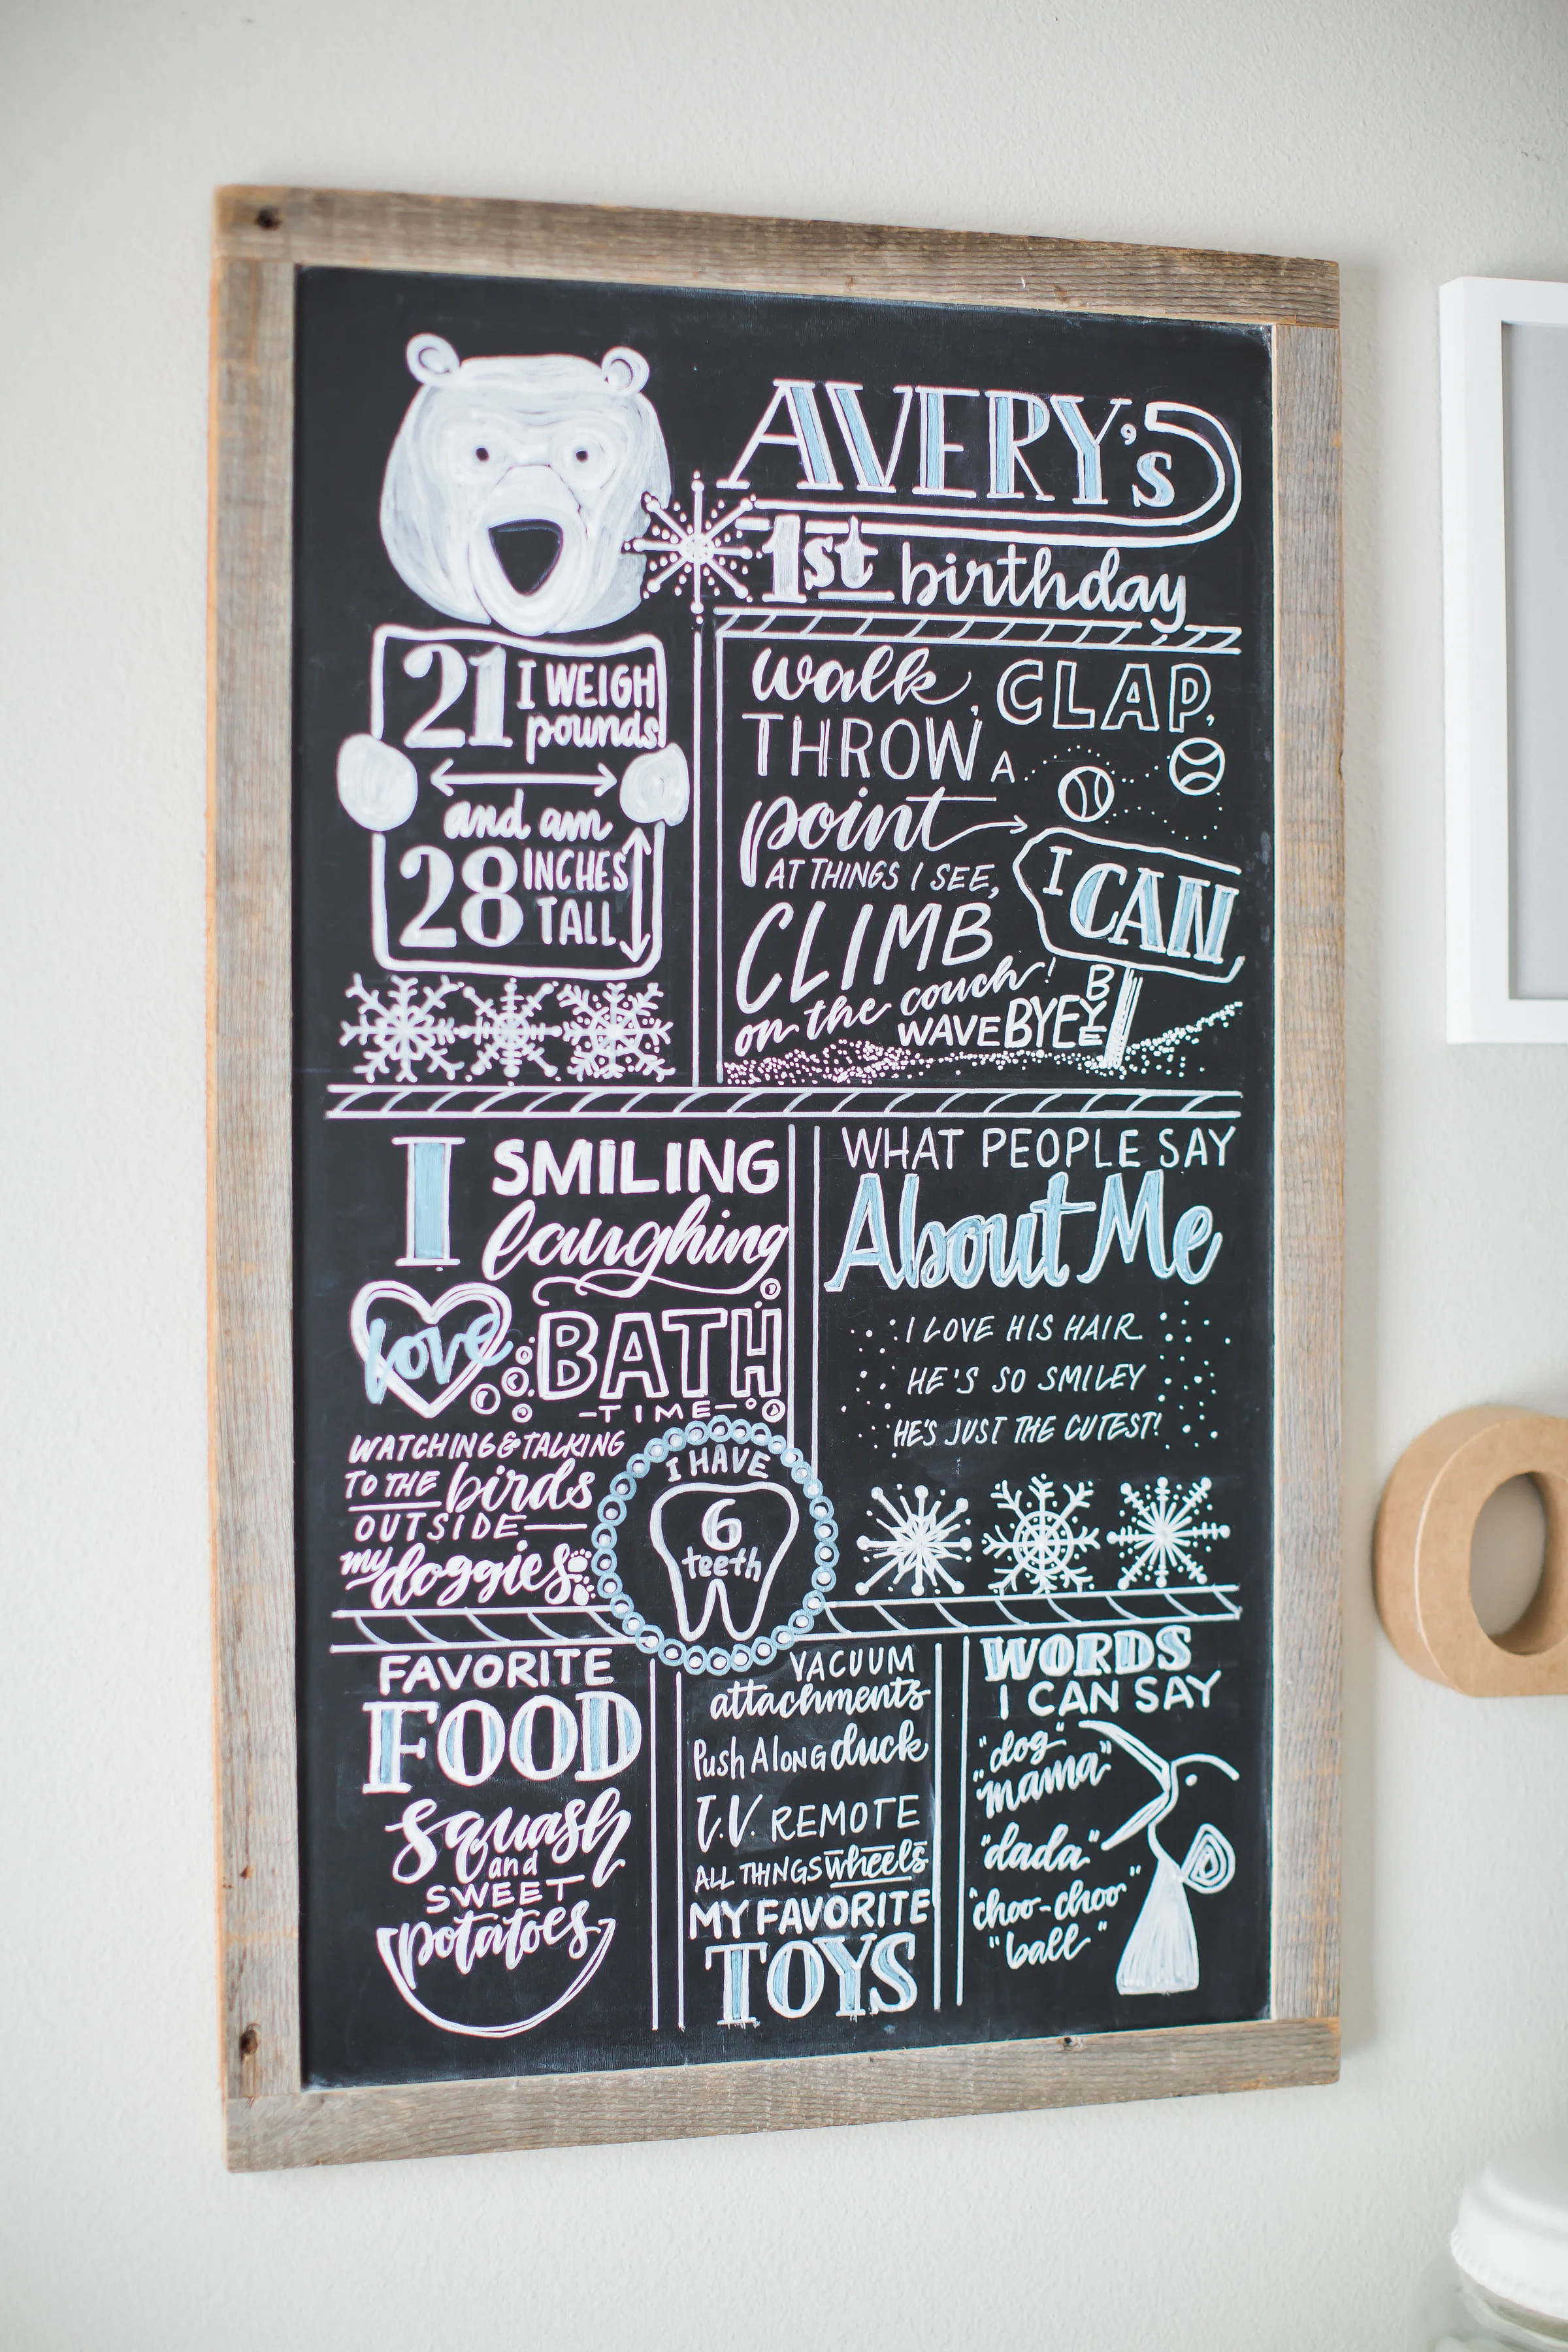 AVERY's
1st birthday
21 I WEIGH
pounds
and am
28 INCHES
TALL
walk, CLAP,
THROW A
point
AT THINGS I SEE,
CLIMB
on the couch!
WAVE BYE BYE
I CAN
I
love
SMILING
laughing
BATH
-TIME-
WATCHING & TALKING
TO THE birds
OUTSIDE
my doggies
I HAVE
6
teeth
WHAT PEOPLE SAY
About Me
I LOVE HIS HAIR
HE'S SO SMILEY
HE'S JUST THE CUTEST!
FAVORITE
FOOD
squash
and
SWEET
potatoes
VACUUM
attachments
Push Along duck
T.V. REMOTE
ALL THINGS wheels
MY FAVORITE
TOYS
WORDS
I CAN SAY
"dog"
"mama"
"dada"
"choo-choo"
"ball"